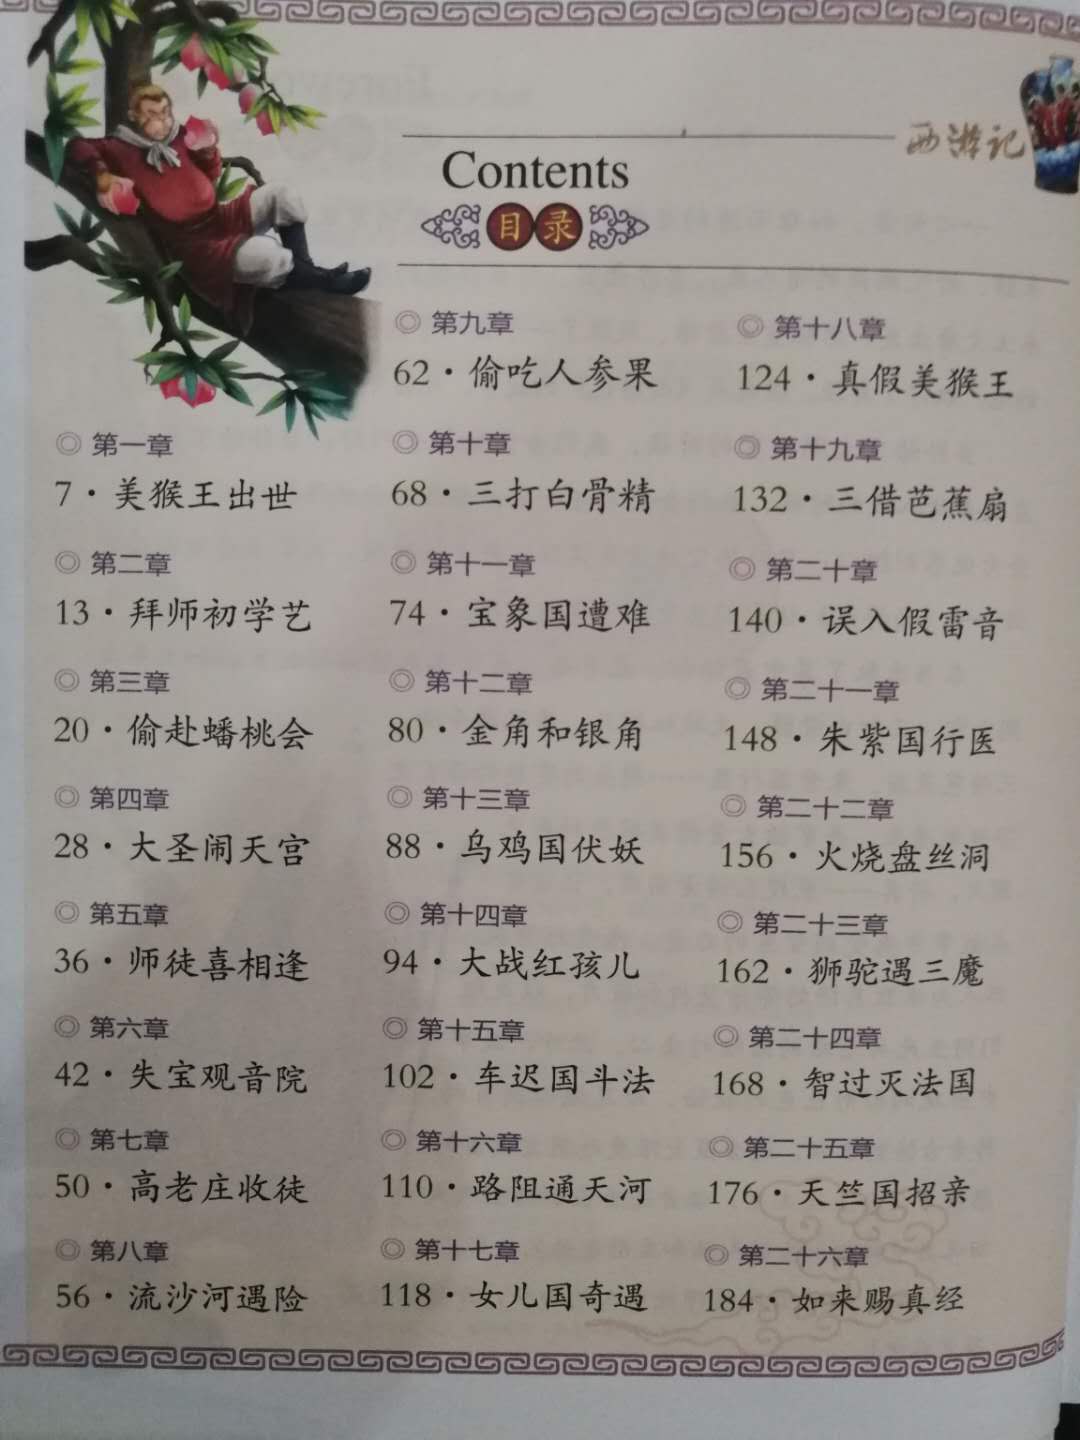 西游记
Contents
目录
第一章
7·美猴王出世
第二章
13·拜师初学艺
第三章
20·偷赴蟠桃会
第四章
28·大圣闹天宫
第五章
36·师徒喜相逢
第六章
42·失宝观音院
第七章
50·高老庄收徒
第八章
56·流沙河遇险
第九章
62·偷吃人参果
第十章
68·三打白骨精
第十一章
74·宝象国遭难
第十二章
80·金角和银角
第十三章
88·乌鸡国伏妖
第十四章
94·大战红孩儿
第十五章
102·车迟国斗法
第十六章
110·路阻通天河
第十七章
118·女儿国奇遇
第十八章
124·真假美猴王
第十九章
132·三借芭蕉扇
第二十章
140·误入假雷音
第二十一章
148·朱紫国行医
第二十二章
156·火烧盘丝洞
第二十三章
162·狮驼遇三魔
第二十四章
168·智过灭法国
第二十五章
176·天竺国招亲
第二十六章
184·如来赐真经